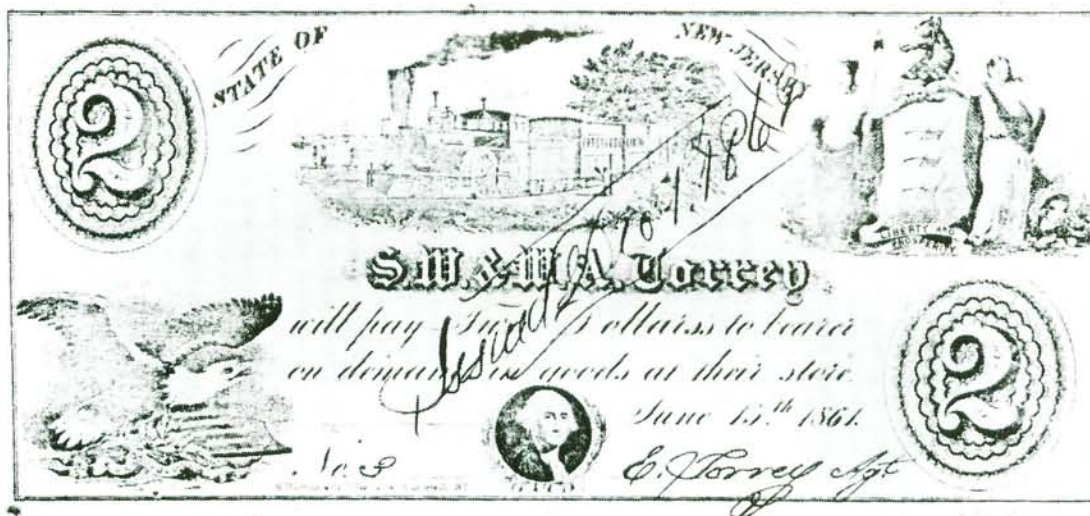 2
STATE OF NEW JERSEY
LIBERTY AND
PROSPERITY
S.W. & W.A. Torrey
will pay Two Dollars to bearer
on demand in goods at their store.
June 15th 1861.
No. 3
E. J. Torrey Agt
2
Issued